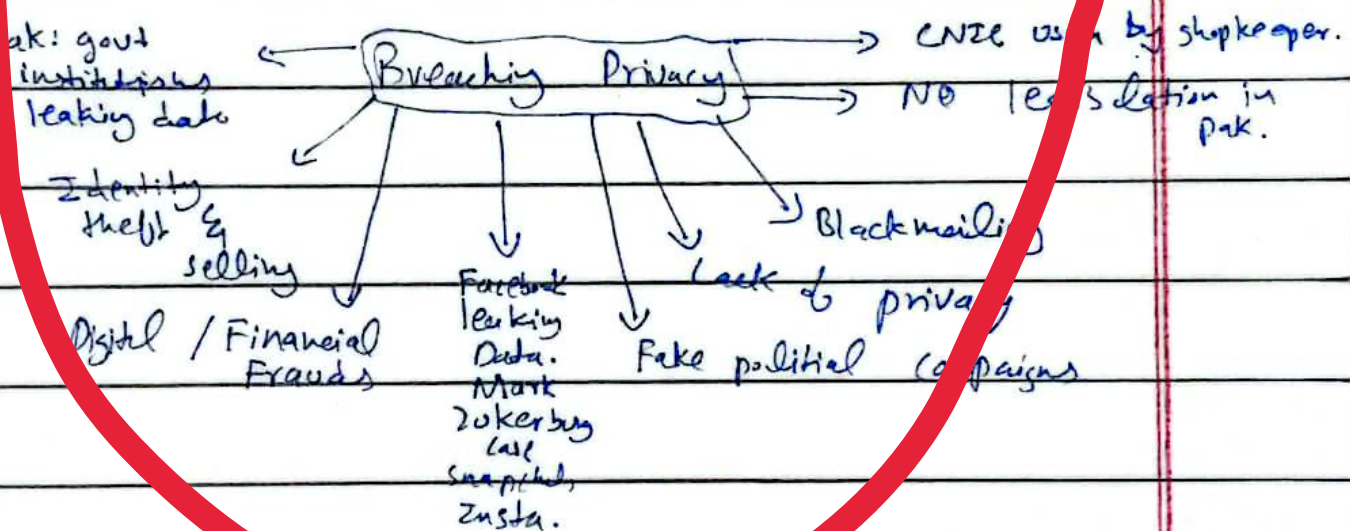 ak: govt
institutions
leaking data
Breaching Privacy
CNIC by shopkeeper.
NO in
pak.
Identity
theft &
selling
Digital / Financial
Frauds
Facebook
leaking
Data.
Mark
Zukerburg
case
Snapchat,
Insta.
Fake politial
Lack of privacy
Blackmailing